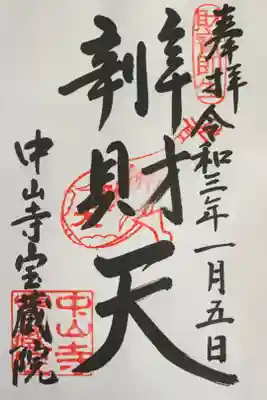 奉拝 令和三年一月五日
辨財天
中山寺宝蔵院
中山寺